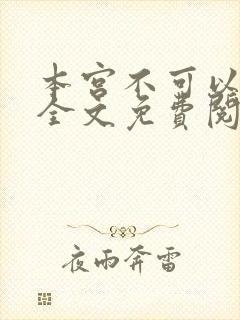 本宫不可以
全文免費閱
夜雨奔雷